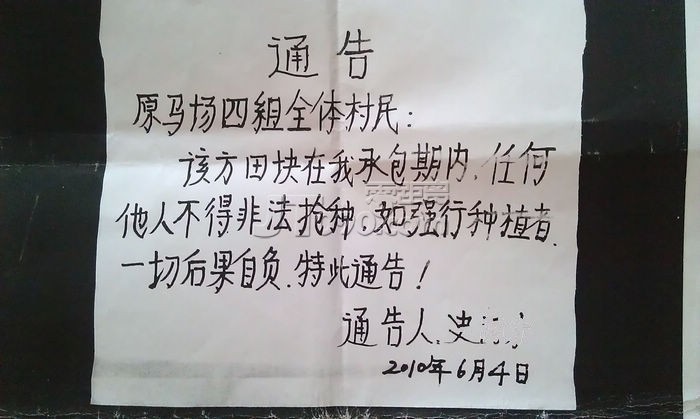 通告
原马场四组全体村民:
该方田块在我承包期内,任何
他人不得非法抢种,如强行种植者,
一切后果自负.特此通告!
通告人.史
2010年6月4日